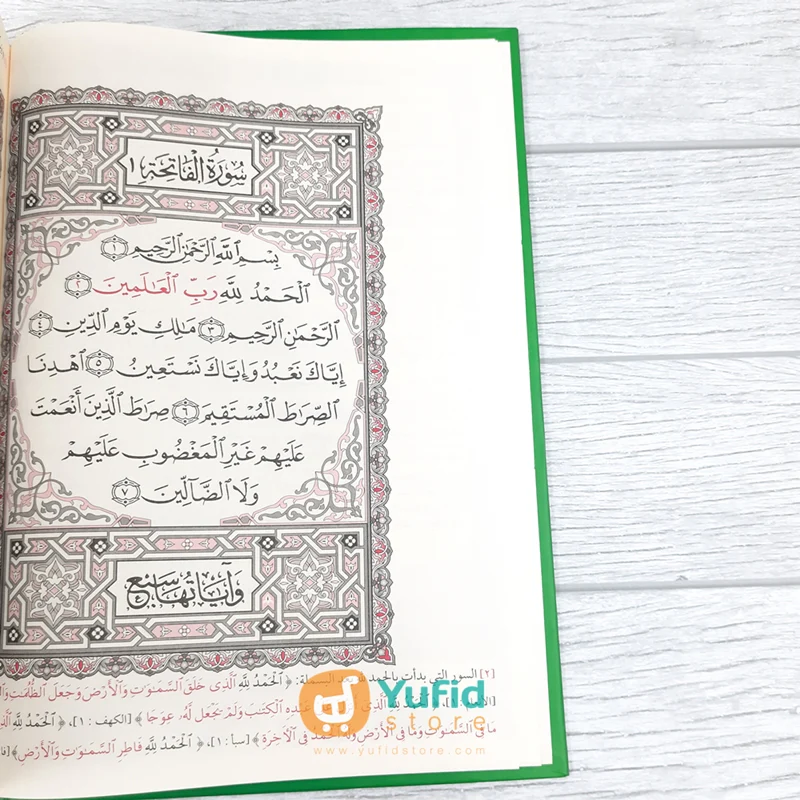 سُورَةُ الْفَاتِحَةِ ١
بِسْمِ ٱللَّهِ ٱلرَّحْمَٰنِ ٱلرَّحِيمِ ١
ٱلْحَمْدُ لِلَّهِ رَبِّ ٱلْعَٰلَمِينَ ٢
ٱلرَّحْمَٰنِ ٱلرَّحِيمِ ٣ مَٰلِكِ يَوْمِ ٱلدِّينِ ٤
إِيَّاكَ نَعْبُدُ وَإِيَّاكَ نَسْتَعِينُ ٥ ٱهْدِنَا
ٱلصِّرَٰطَ ٱلْمُسْتَقِيمَ ٦ صِرَٰطَ ٱلَّذِينَ أَنْعَمْتَ
عَلَيْهِمْ غَيْرِ ٱلْمَغْضُوبِ عَلَيْهِمْ
وَلَا ٱلضَّآلِّينَ ٧
وَآيَاتُهَا سَبْعٌ
[٢] السور التي بدأت بالحمد لله بعد البسملة: ﴿ٱلْحَمْدُ لِلَّهِ ٱلَّذِى خَلَقَ ٱلسَّمَٰوَٰتِ وَٱلْأَرْضَ وَجَعَلَ ٱلظُّلُمَٰتِ
ٱلْكِتَٰبَ وَلَمْ يَجْعَل لَّهُۥ عِوَجَا﴾ [الكهف: ١]، ﴿ٱلْحَمْدُ لِلَّهِ
مَا فِى ٱلسَّمَٰوَٰتِ وَمَا فِى ٱلْأَرْضِ وَلَهُ ٱلْحَمْدُ فِى ٱلْأَخِرَةِ﴾ [سبأ: ١]، ﴿ٱلْحَمْدُ لِلَّهِ فَاطِرِ ٱلسَّمَٰوَٰتِ وَٱلْأَرْضِ﴾
Yufid
store
www.yufidstore.com